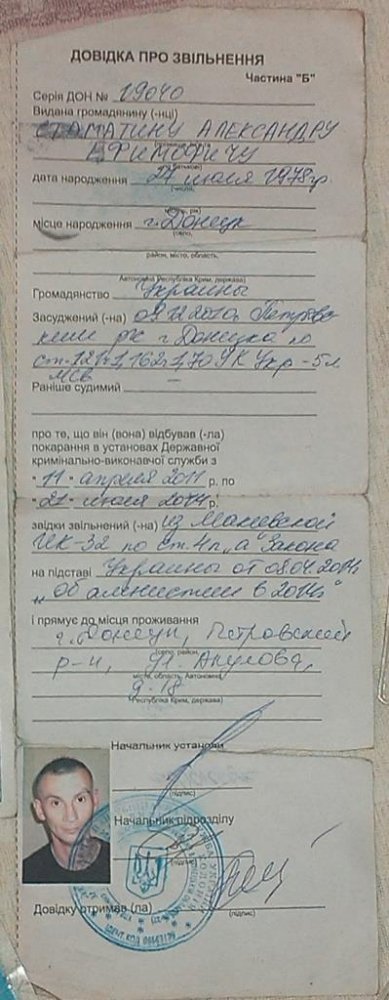 ДОВІДКА ПРО ЗВІЛЬНЕННЯ
Частина "Б"
Серія ДОН № 19040
Видана громадянину (-нці)
СТАМАТИНУ АЛЕКСАНДРУ
ЕФИМОФИЧУ
дата народження 27 июля 1978 гр.
місце народження г. Донецк
район, місто, область,
Автономна Республіка Крим, держава)
Громадянство Украины
Засуджений (-на) 09.12.2010г. Петровс
ким рс г. Донецка по
УК Укр - 5 л
Раніше судимий —
про те, що він (вона) відбував (-ла)
покарання в установах Державної
кримінально-виконавчої служби з
"11" апреля 2011 р. по
"21" июля 2014 р.
звідки звільнений (-на) из Макеевской
ИК-32 по ст. 4 п. "а" Закона
на підставі Украины от 08.04.2014г
"Об амнистии в 2014г"
і прямує до місця проживання
г. Донецк, Петровский
р-н, ул. Акулова,
місто, область, Автономна
д-18
Республіка Крим, держава)
Начальник установи
(підпис)
Начальник підрозділу
(підпис)
Довідку отримав (ла)
(підпис)